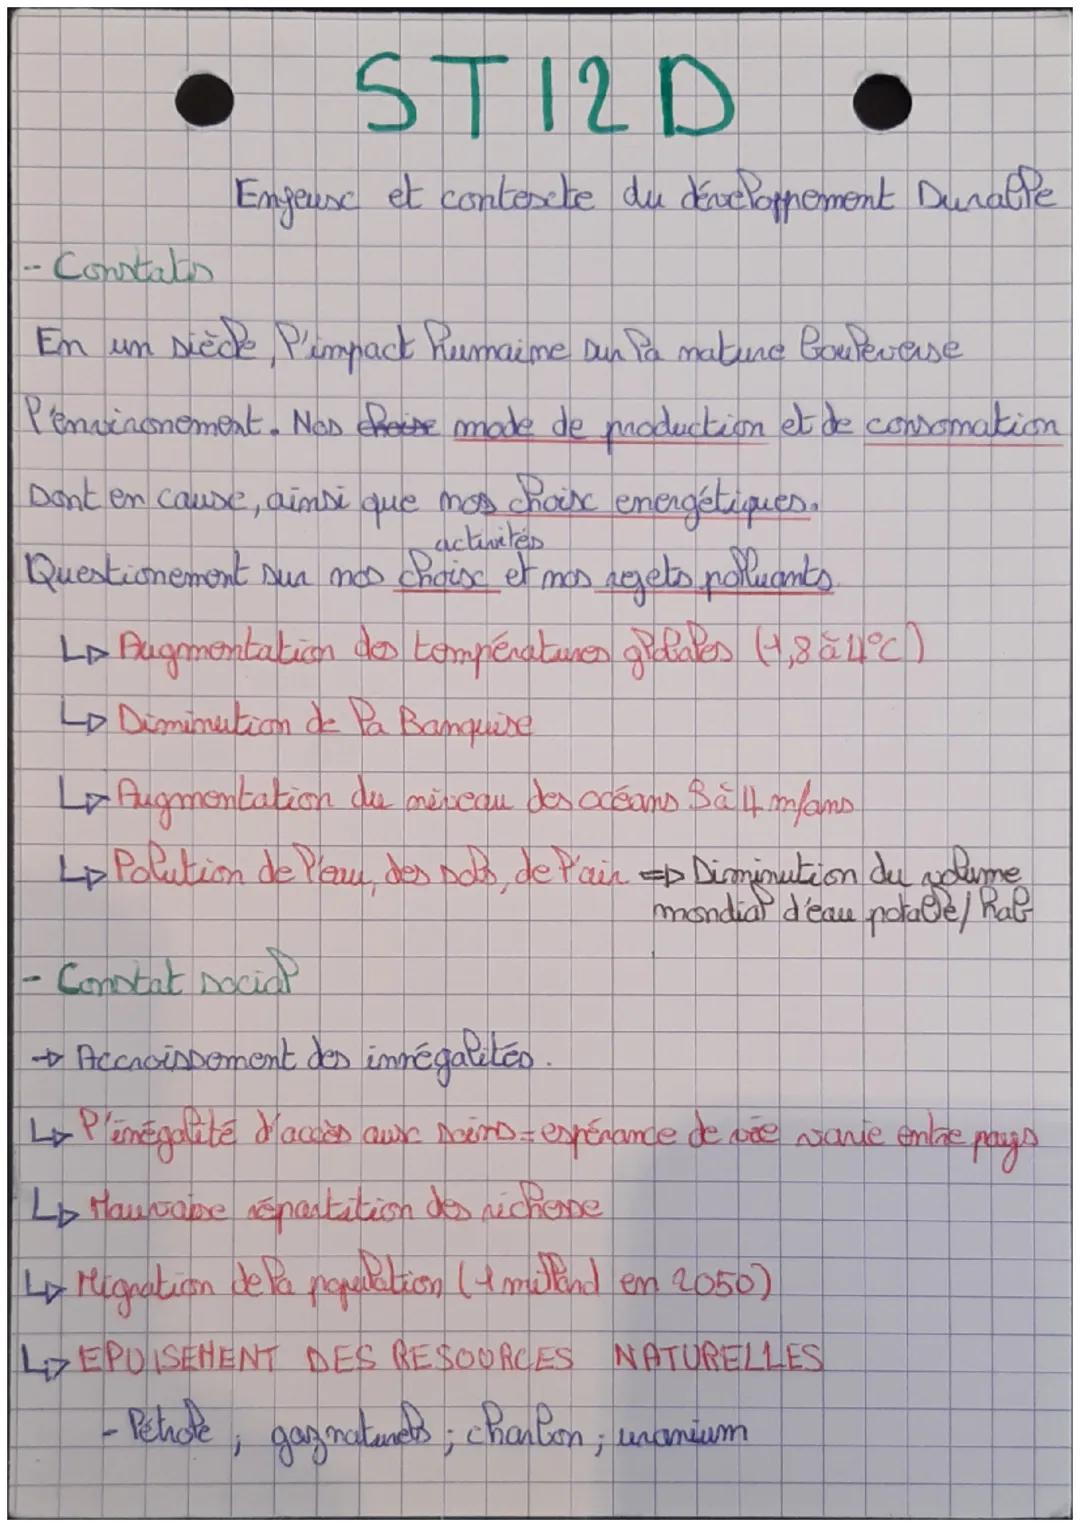 STI2D
Enjeux et contexte du développement Durable
- Constats
En un siècle, l'impact humaine sur la nature bouleverse
l'environement. Nos choix mode de production et de consomation
sont en cause, ainsi que nos choix energétiques.
activités
Questionement sur nos choix et nos rejets polluants.
↳ Augmentation des températures globales (1,8 à 4°C)
↳ Diminution de la Banquise
↳ Augmentation du niveau des océans 3 à 4 m/ans
↳ Polution de l'eau, des sols, de l'air => Diminution du volume
mondial d'eau potable/hab
- Constat social
→ Accroissement des innégalités.
↳ l'inégalité d'accès aux soins = espérance de vie varie entre pays
↳ Mauvaise répartition des richesse
↳ Migration de la population (1 milliard en 2050)
↳ EPUISEMENT DES RESOURCES NATURELLES
- Pétrole ; gaz naturels ; charbon ; uranium